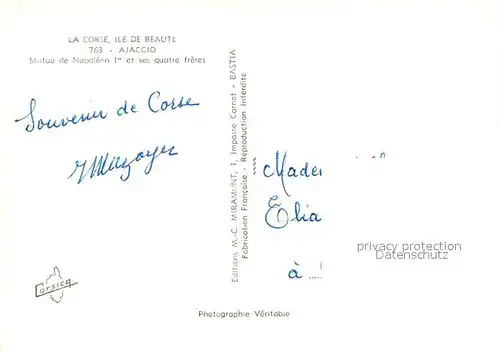 LA CORSE, ILE DE BEAUTE
763 - AJACCIO
Statue de Napoléon 1er et ses quatre frères
Souvenir de Corse
Editions M.-C. MIRAMONT, 1, Impasse Carnot - BASTIA
Fabrication Française - Reproduction Interdite
Elia
à
privacy protection
Datenschutz
corsica
Photographie Véritable